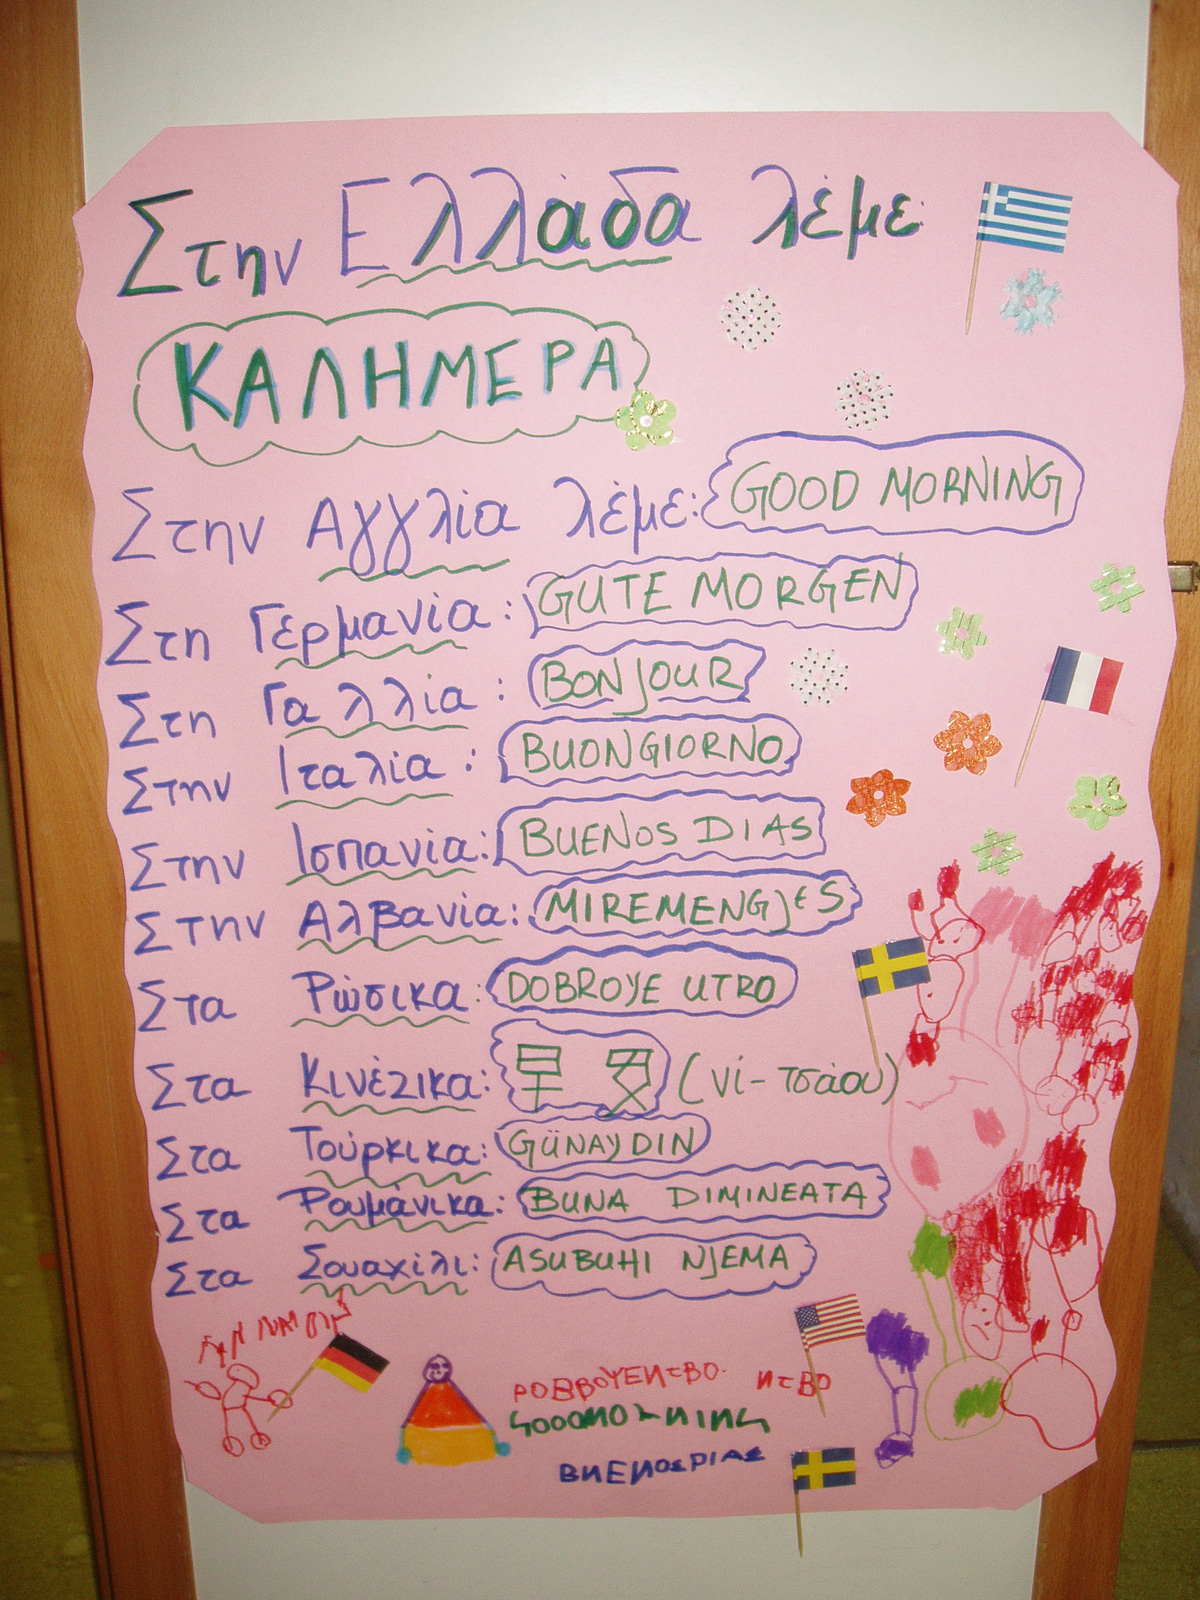 Στην Ελλάδα λέμε
ΚΑΛΗΜΕΡΑ
Στην Αγγλία λέμε: GOOD MORNING
Στη Γερμανία: GUTE MORGEN
Στη Γαλλία: BONJOUR
Στην Ιταλία: BUONGIORNO
Στην Ισπανία: BUENOS DIAS
Στην Αλβανία: MIREMENGJES
Στα Ρώσικα: DOBROYE UTRO
Στα Κινέζικα: (νί-τσάου)
Στα Τούρκικα: GÜNAYDIN
Στα Ρουμάνικα: BUNA DIMINEATA
Στα Σουαχίλι: ASUBUHI NJEMA